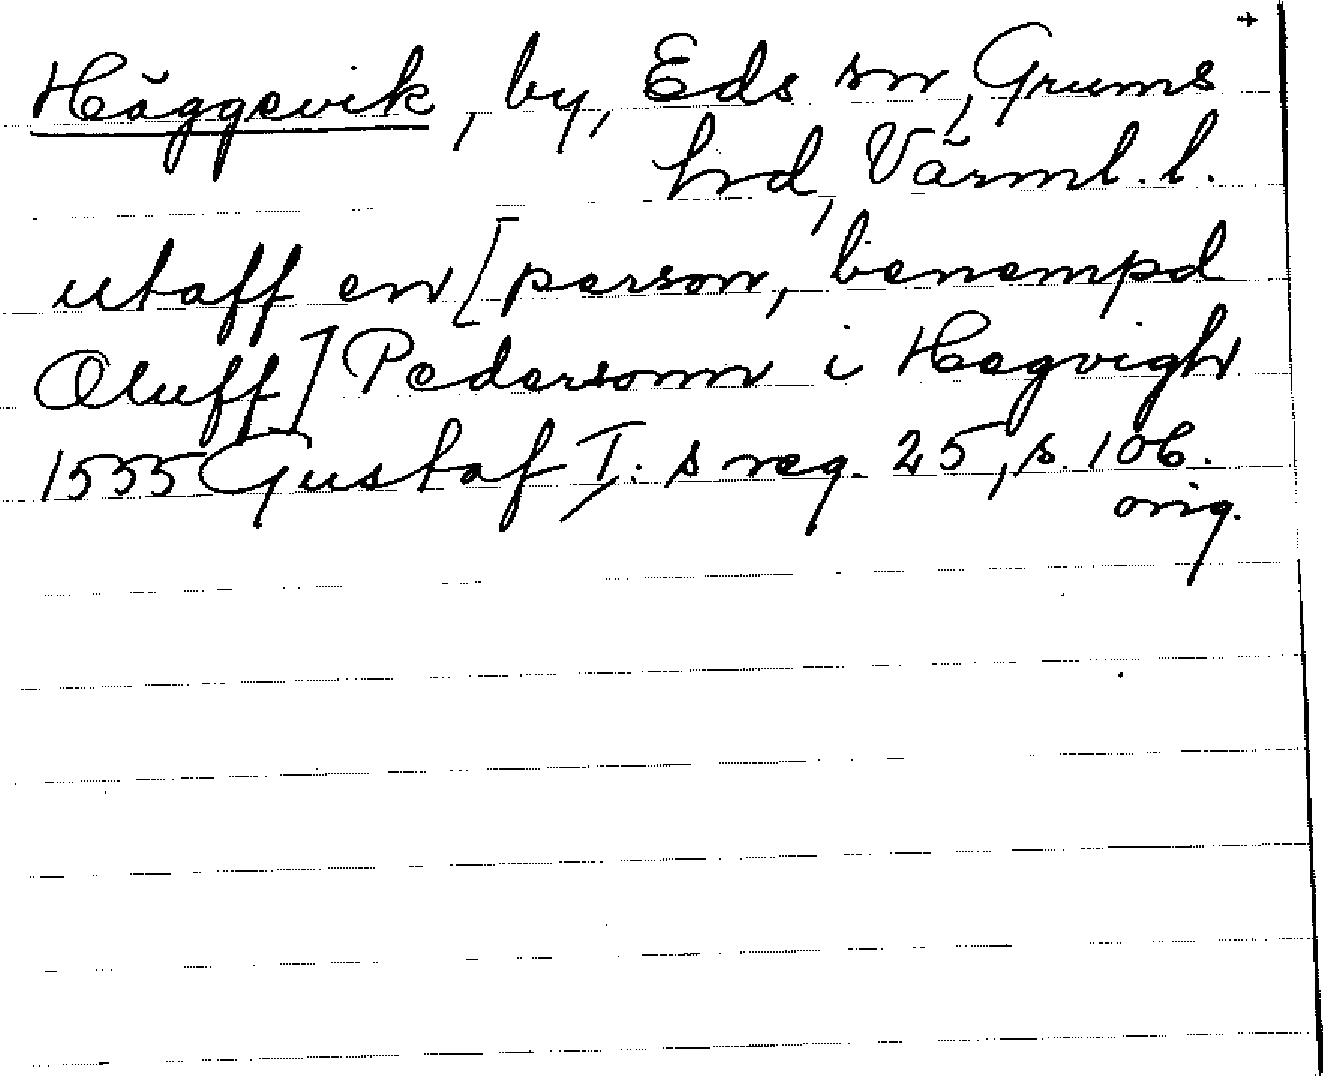 Häggevik, by, Eds sn, Grums
hrd, Värml. l.
utaff en [person, benempd
Oluff] Pedersonn i Hegvigh
1555 Gustaf I: s reg. 25, s. 106.
orig.